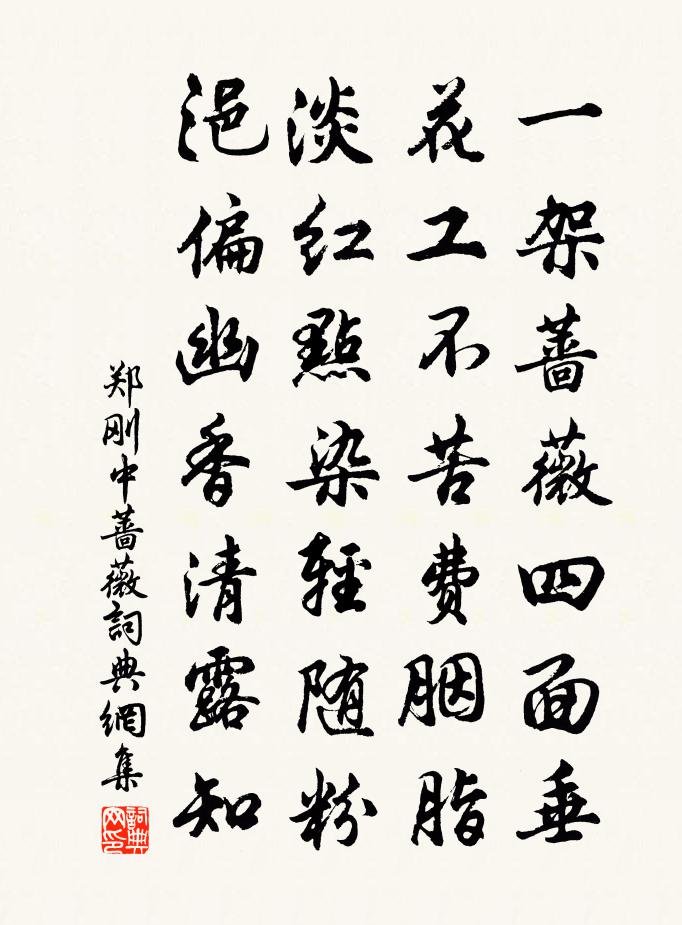 一架蔷薇四面垂
花工不苦费胭脂
淡红點染輕随粉
浥偏幽香清露知
郑刚中蔷薇詞典網集
詞典网印